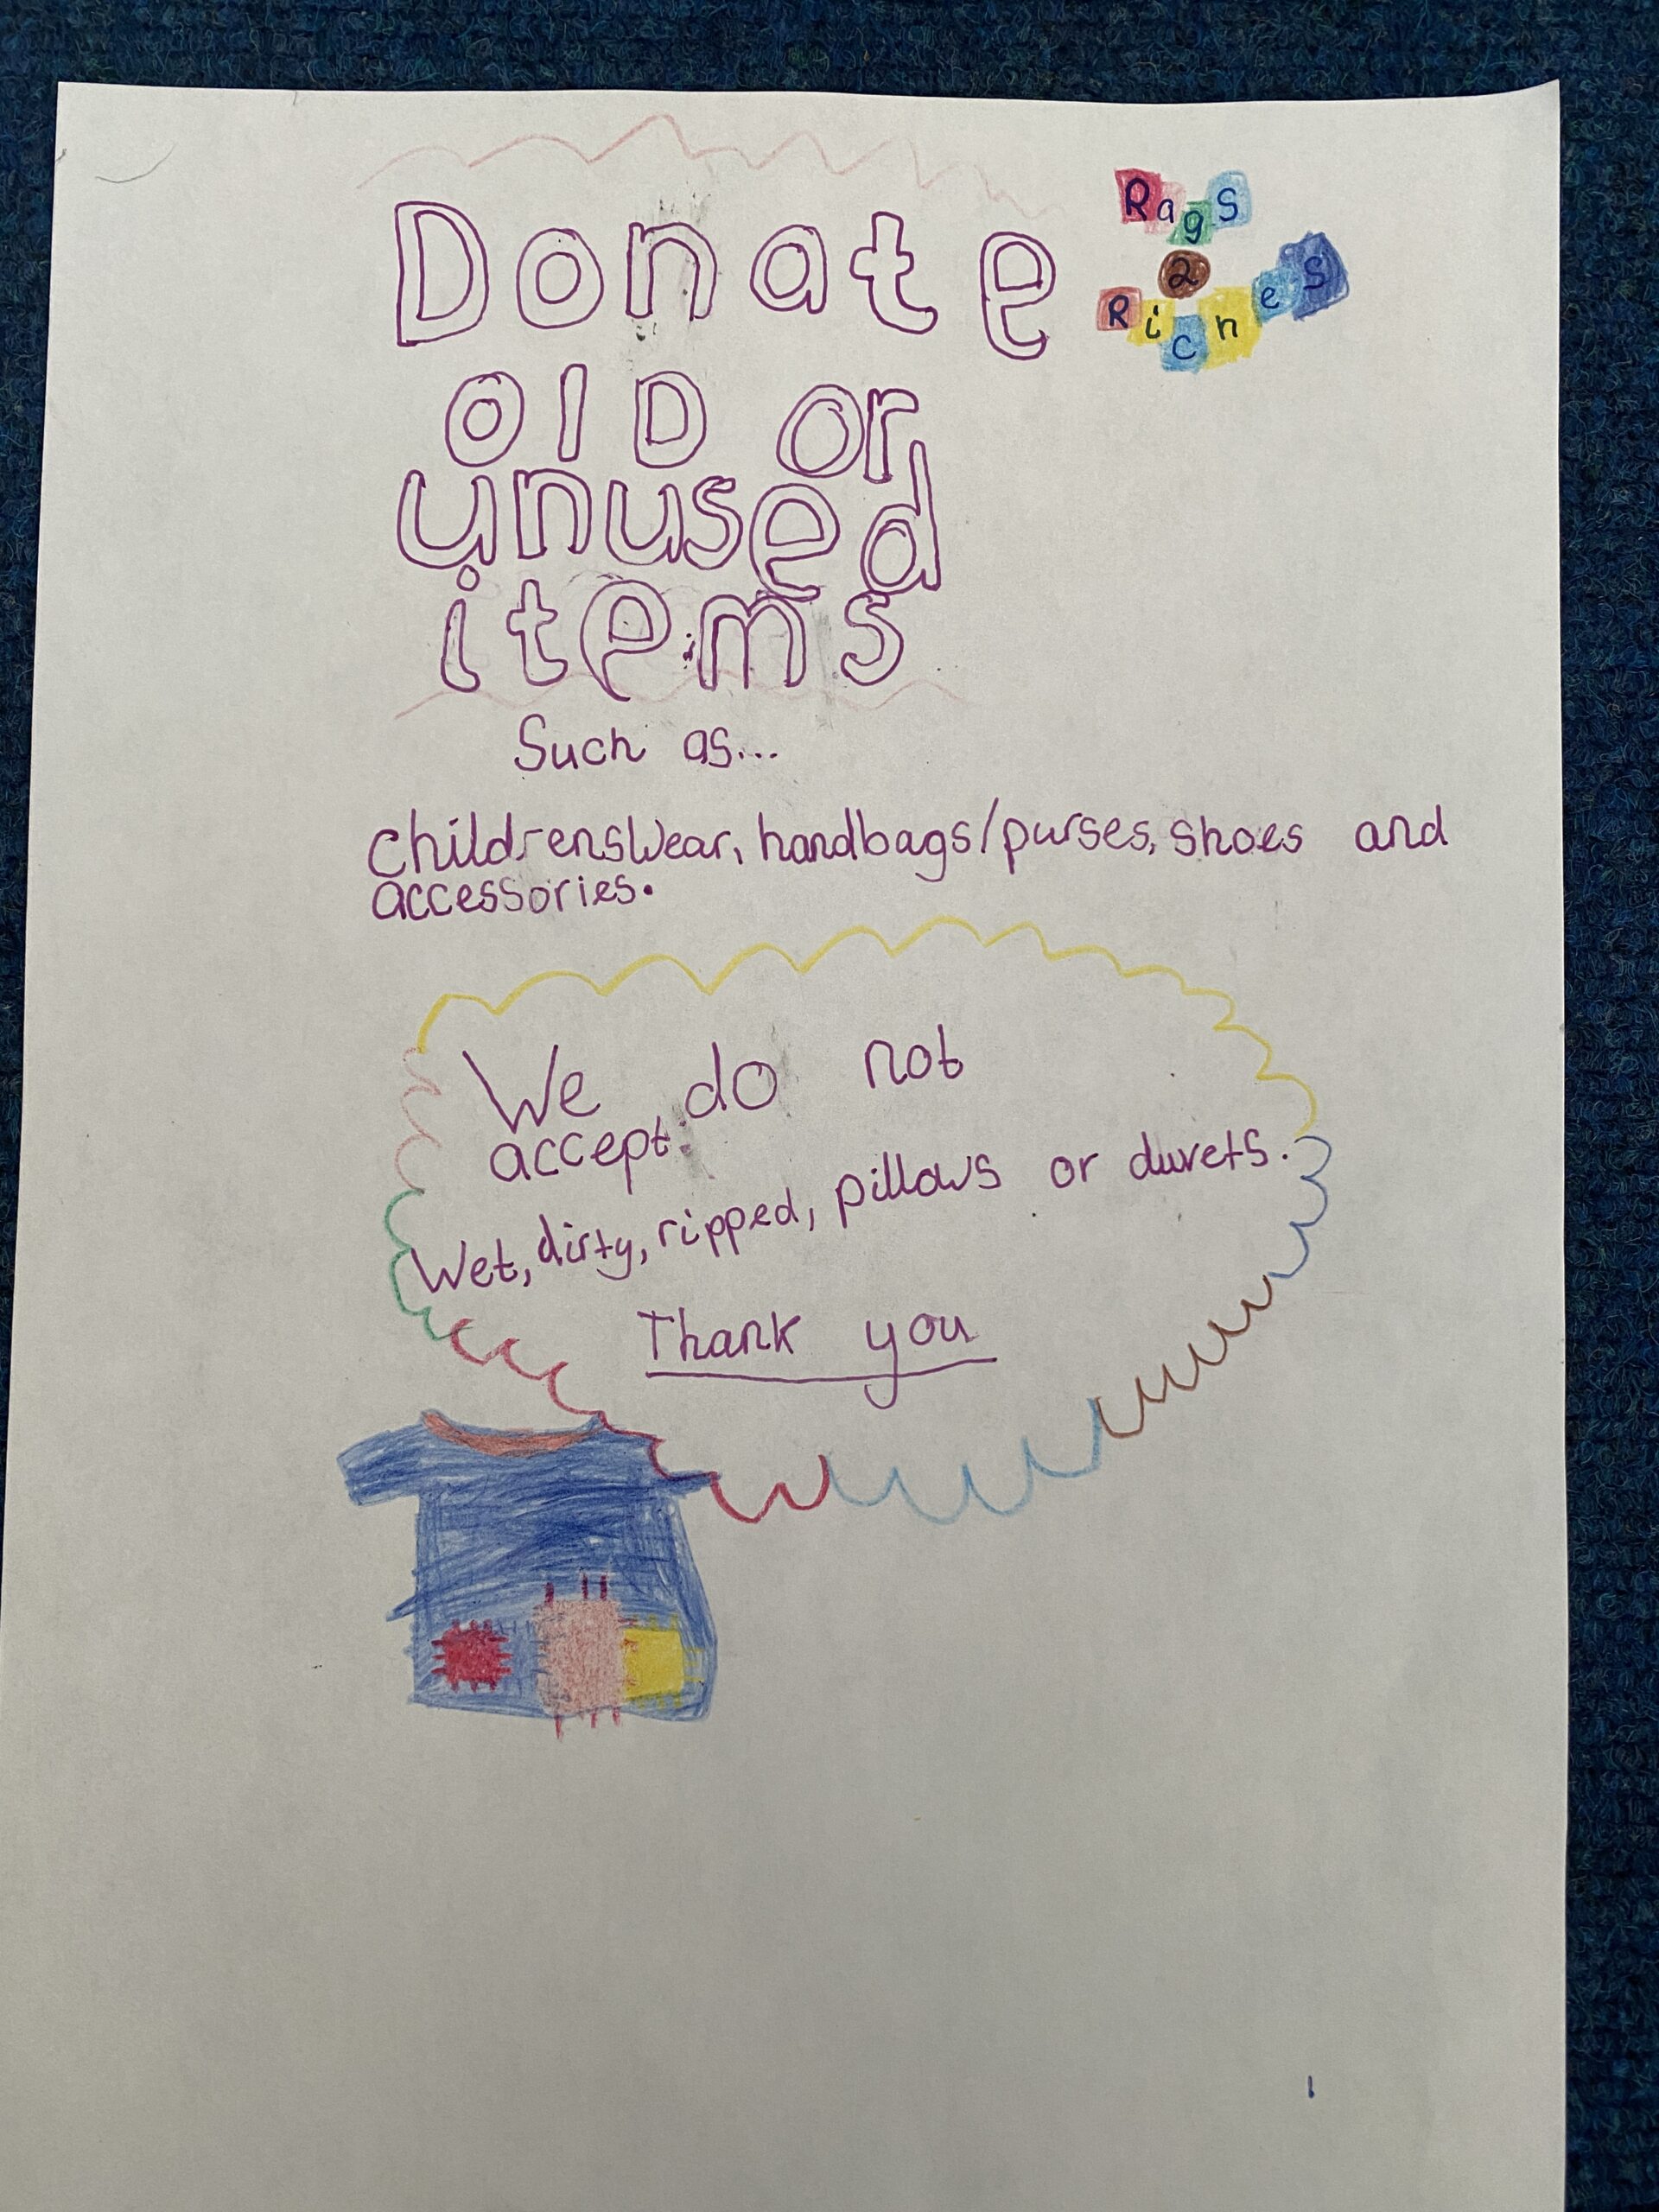 Donate
Rags
2
Riches
OlD or
unused
items
Such as...
childrensWear, handbags/purses, shoes and
accessories.
We do not
accept:
Wet, dirty, ripped, pillows or duvets.
Thank you